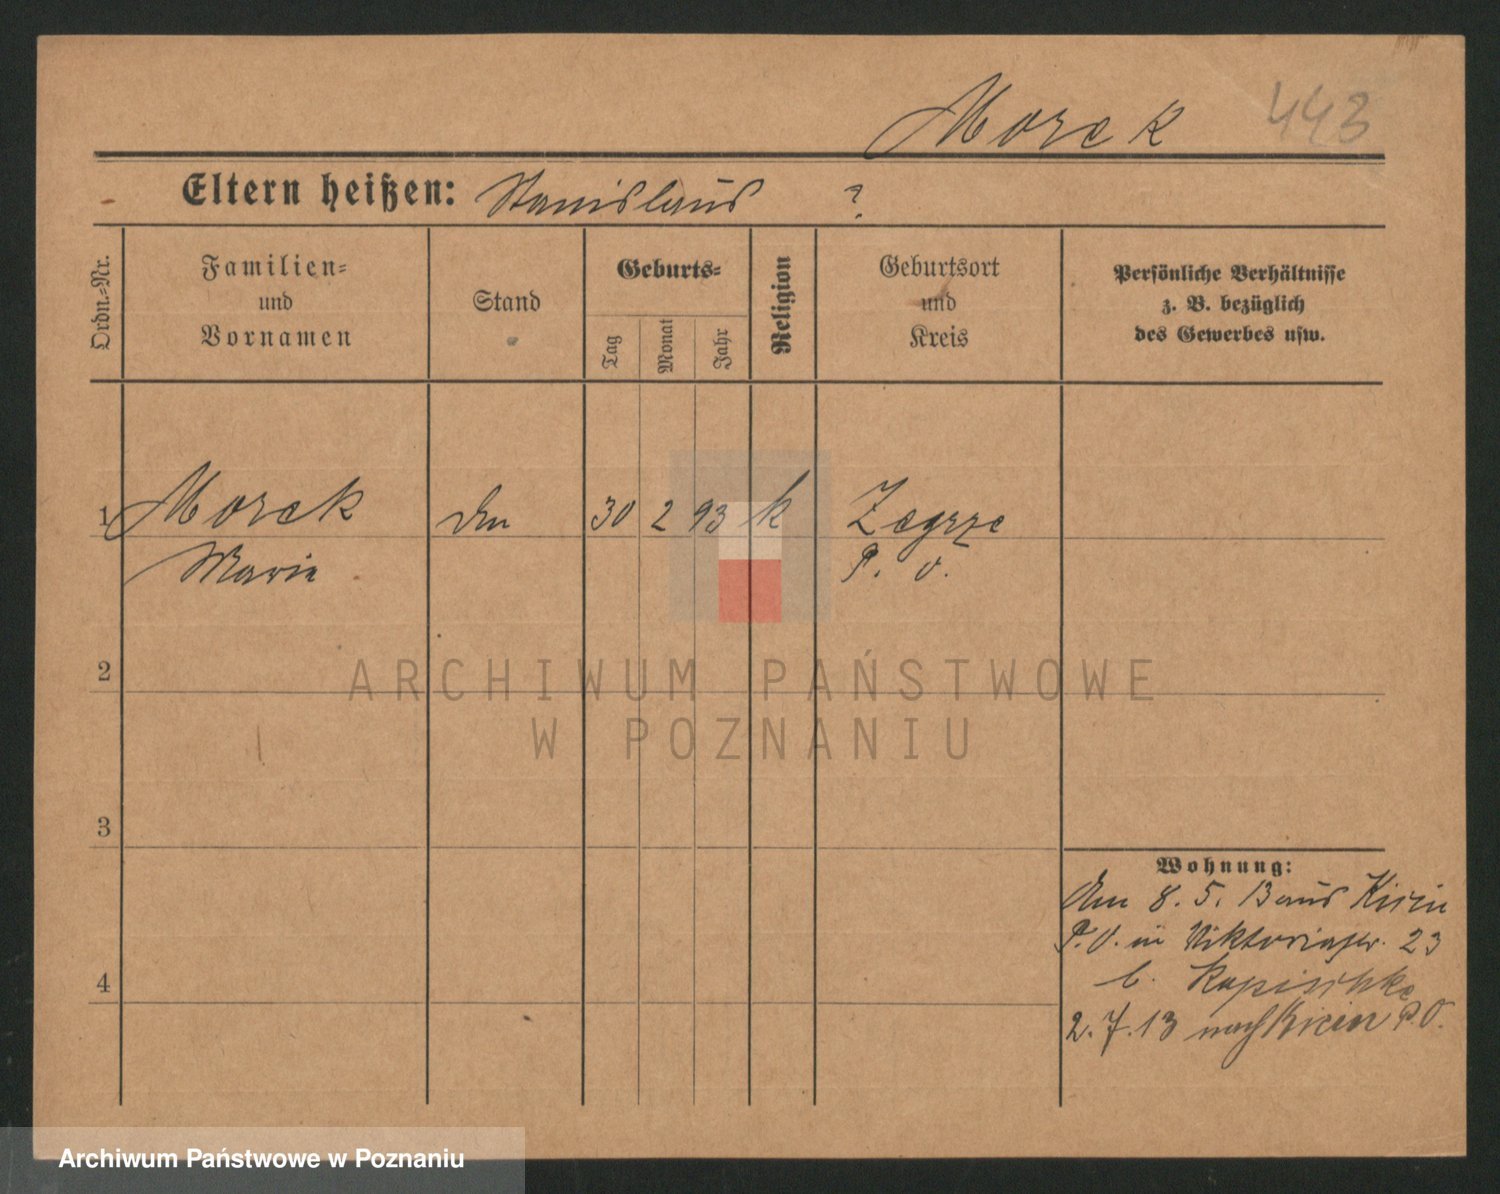 Morck 443
Eltern heißen: Stanislaus ?
Ordn.-Nr.
Familien-
und
Vornamen
Stand
Geburts-
Tag
Monat
Jahr
Religion
Geburtsort
und
Kreis
Persönliche Verhältnisse
z. B. bezüglich
des Gewerbes usw.
1 Morck 30 2 93 k Zegrze
Marie P. O.
2
3
4
Wohnung:
8. 5. 13 aus Kicin
P. O. in Viktoriastr. 23
b. Kopischke
2. 7. 13 nach Kicin P. O.
ARCHIWUM PAŃSTWOWE
W POZNANIU
Archiwum Państwowe w Poznaniu